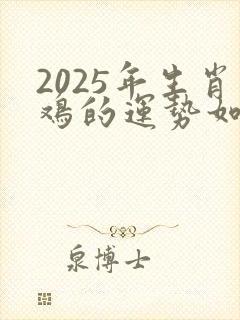 2025年生肖
鸡的運势如
泉博士